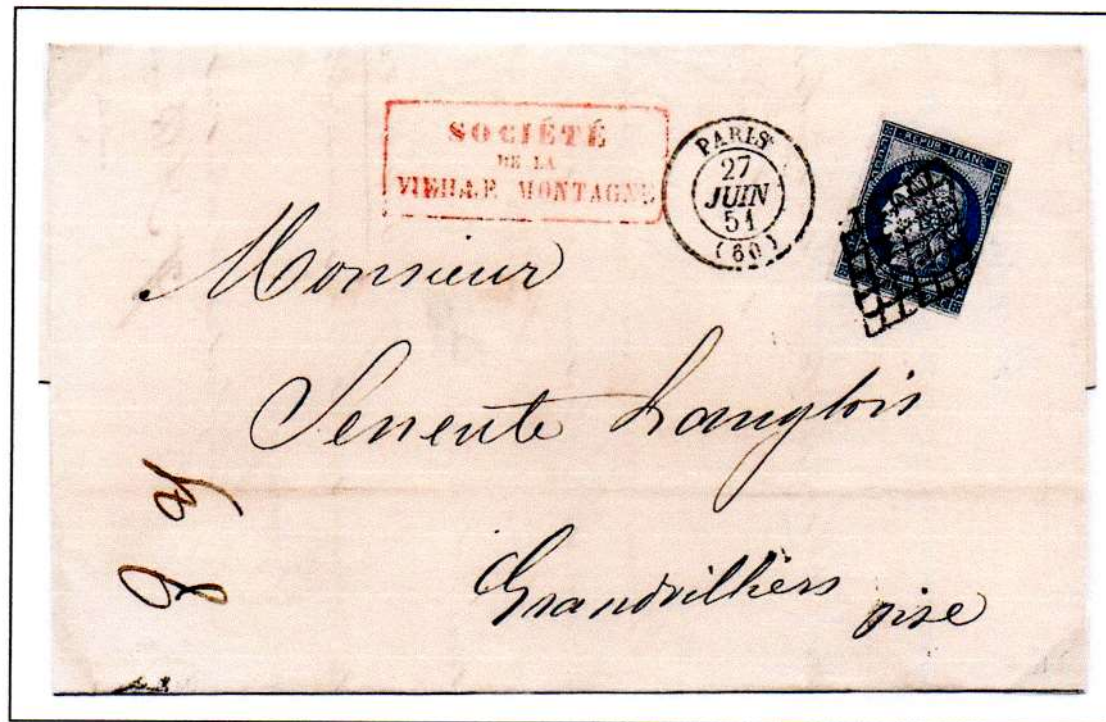 SOCIÉTÉ
DE LA
VIEILLE MONTAGNE
PARIS
27
JUIN
51
(60)
REPUB. FRANC.
Monsieur
Langlois
Grandvilliers oise